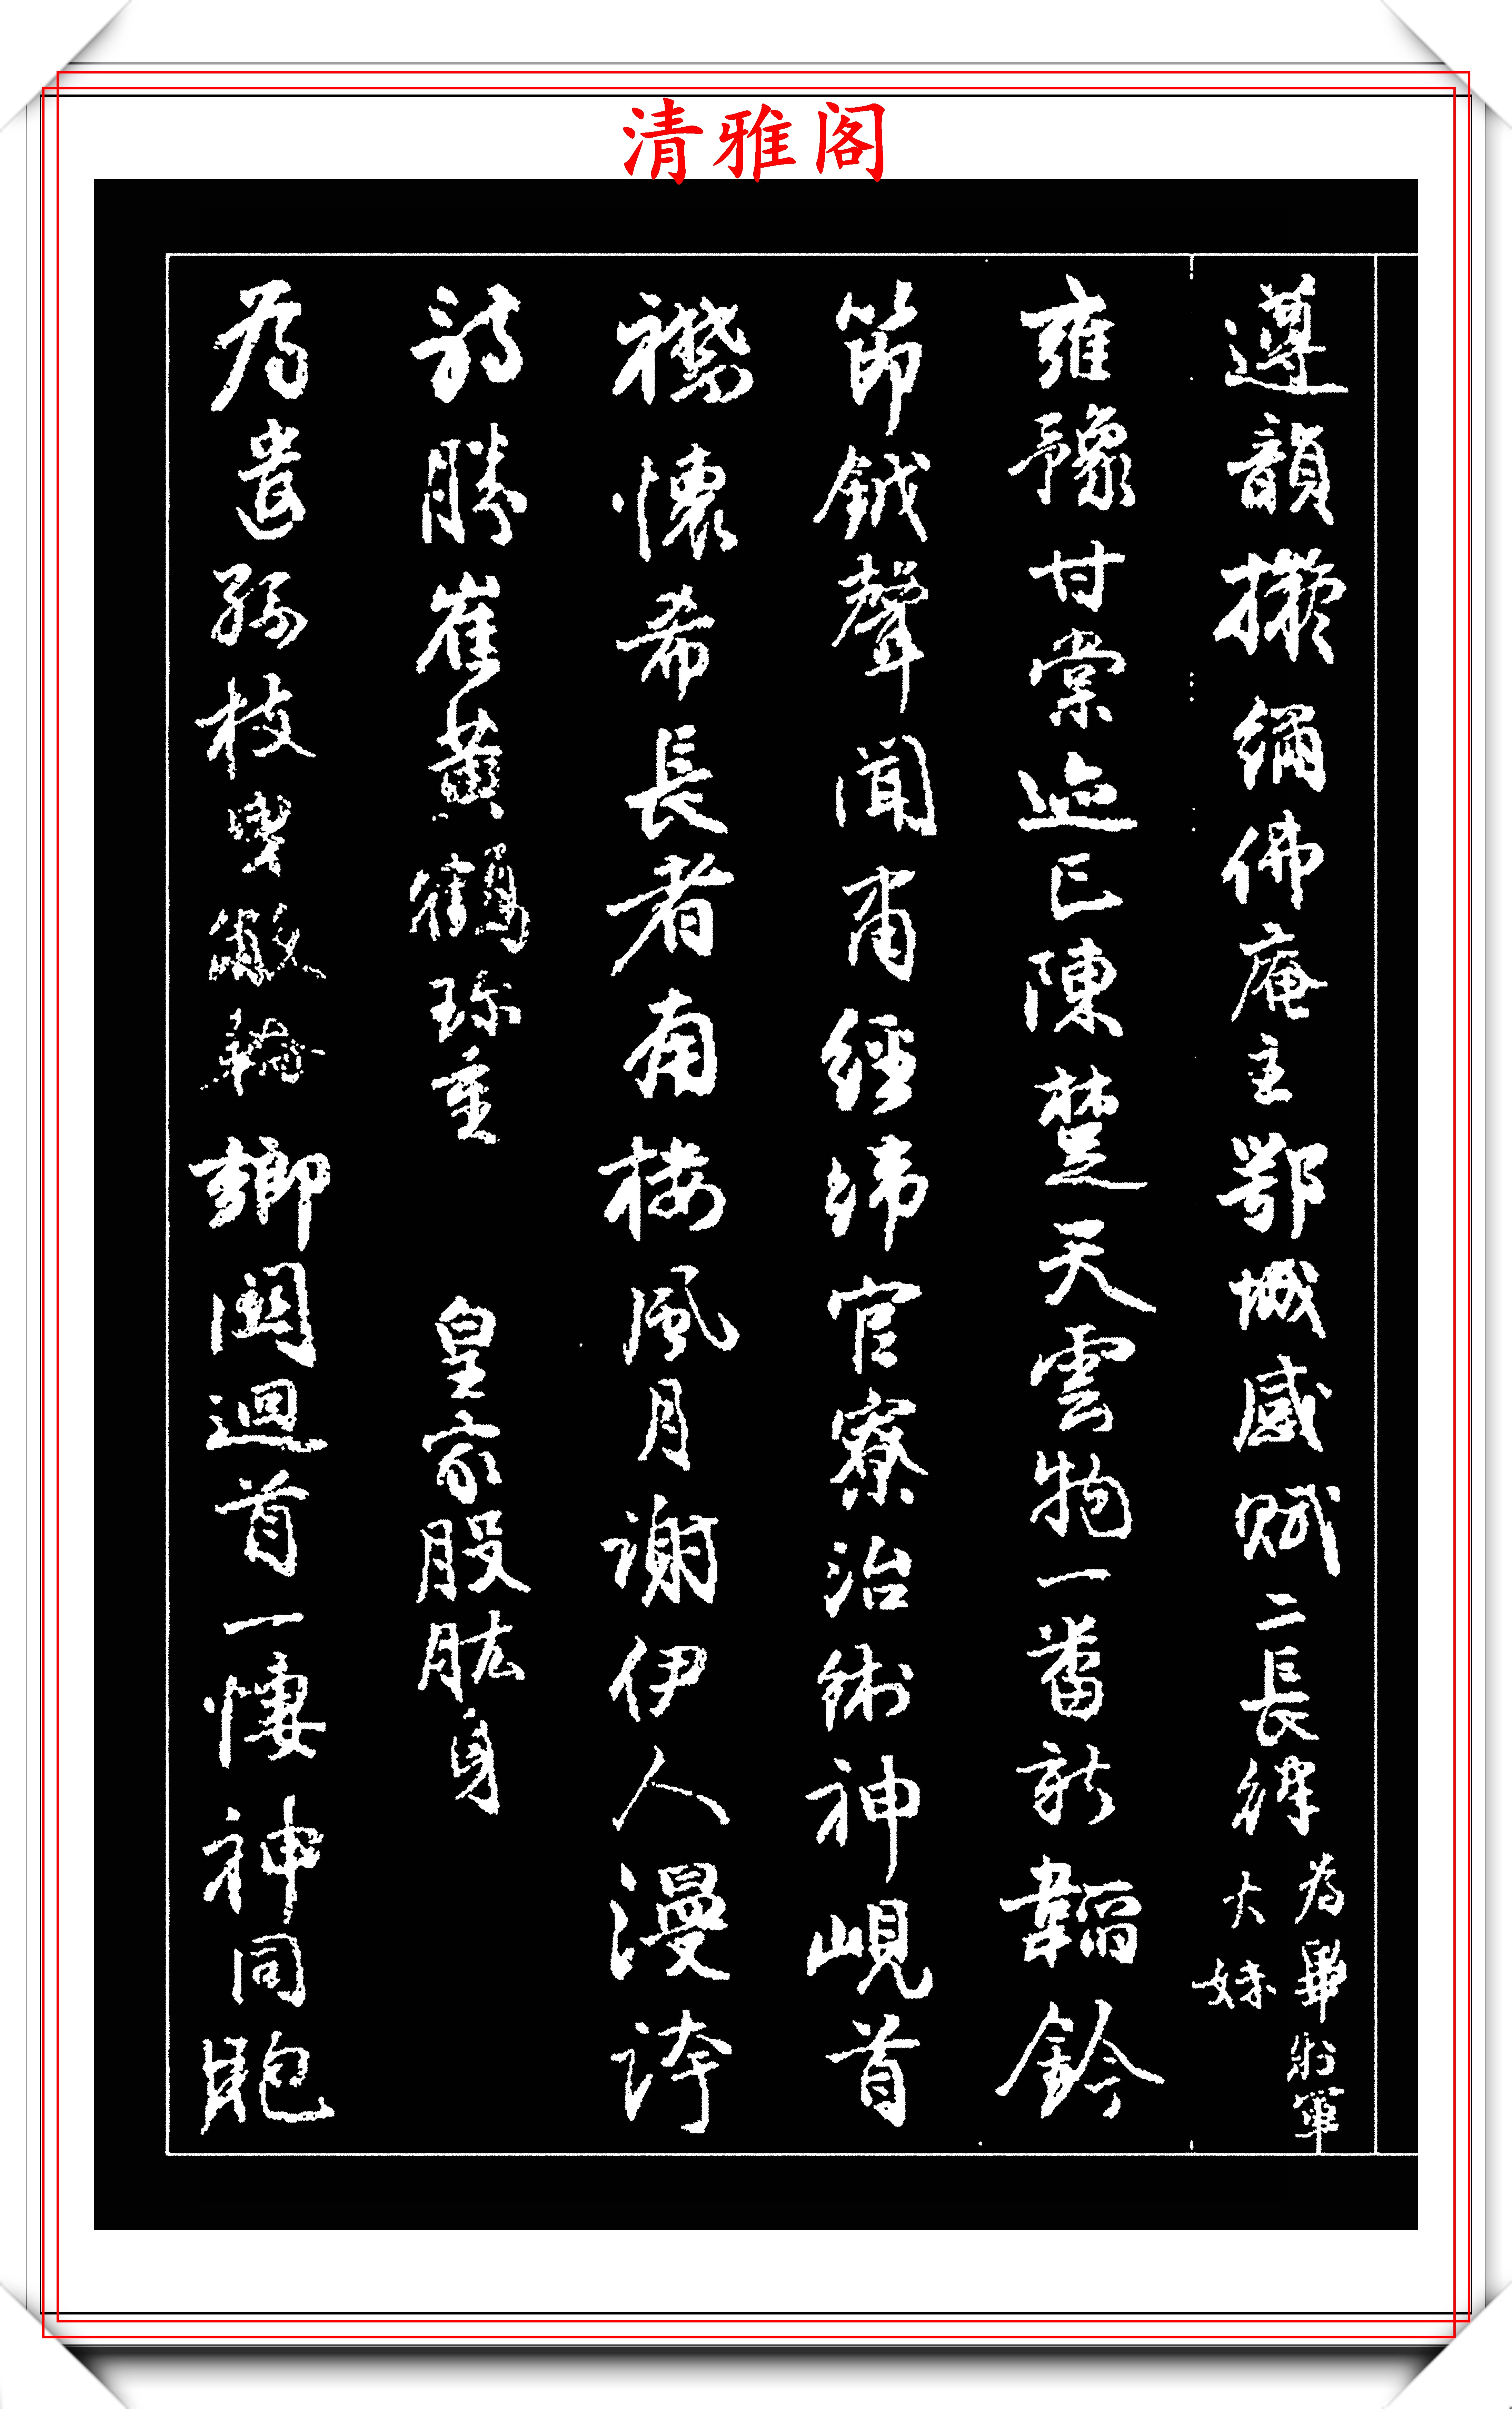 清雅阁
遵韻擬繡佛庵主鄂城感賦二長律為畢衍軍大妹
雍豫甘棠迹已陳楚天雲物一番新韜鈐
節鉞聲聞甫經緯官寮治術神峴首
襟懷希長者南樓風月謝伊人漫誇
詩勝崔黃鶴珍重 皇家股肱身
為遣孫枝 鄉閭迴首一悽神同胞